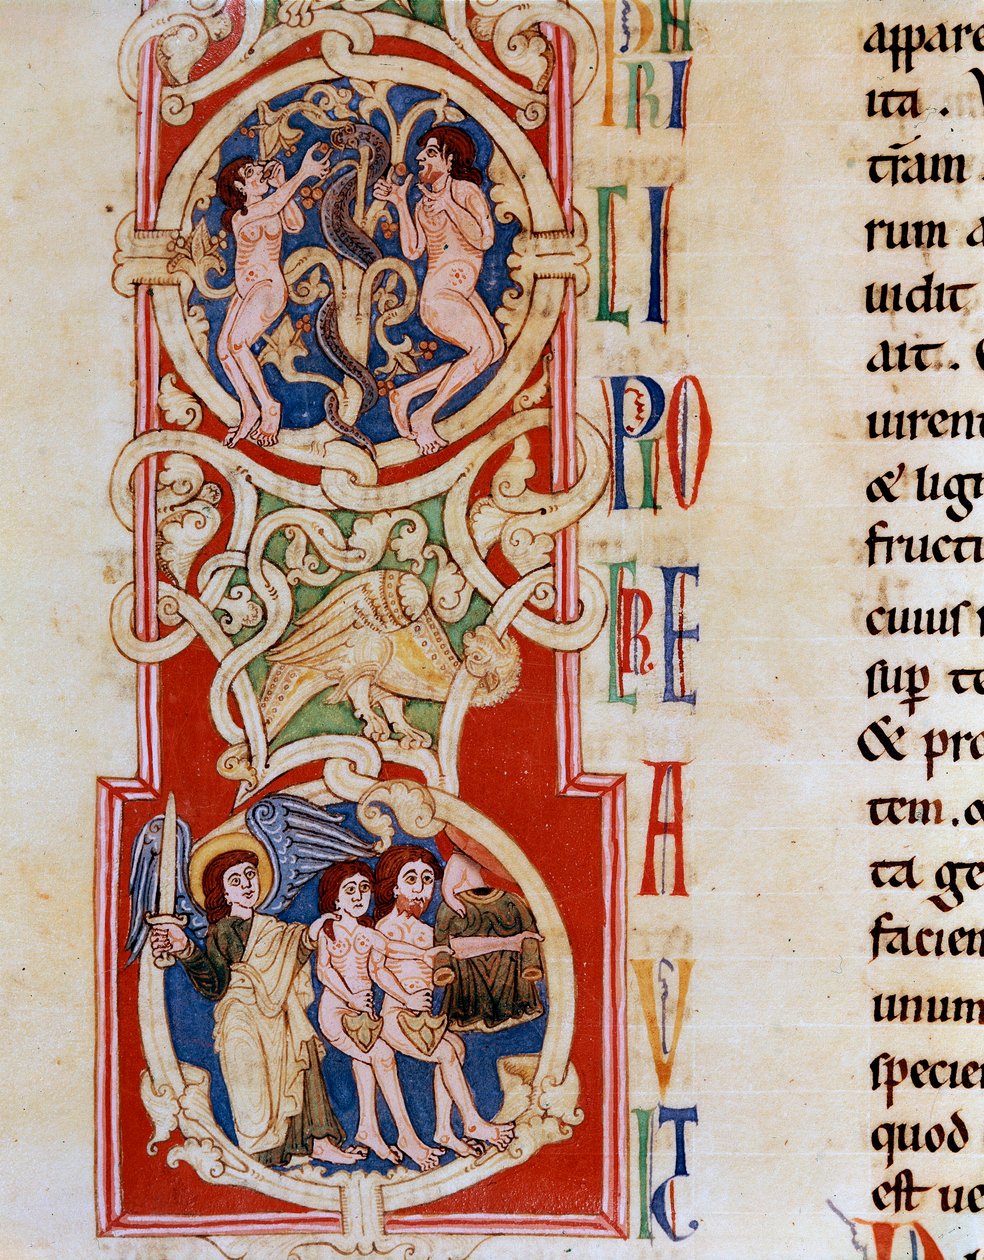 RI
CI
PIO
CRE
A
V
IT
appare
ita .
tr̄am
rum a
uidit
ait .
uirent
& lig
fructu
cuius
sup̱ te
& pro
tem . &
ta ge
facien
unum
specie
quod
est ue